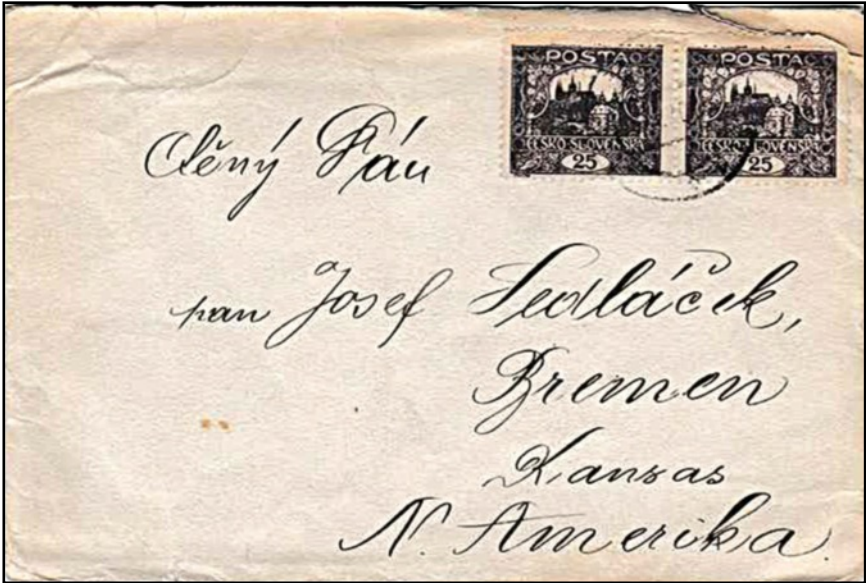 POSTA POSTA
ČESKO-SLOVENSKÁ ČESKO-SLOVENSKÁ
25 25
Ctěný Pán
pan Josef Sedláček,
Bremen
Kansas
N. Amerika.